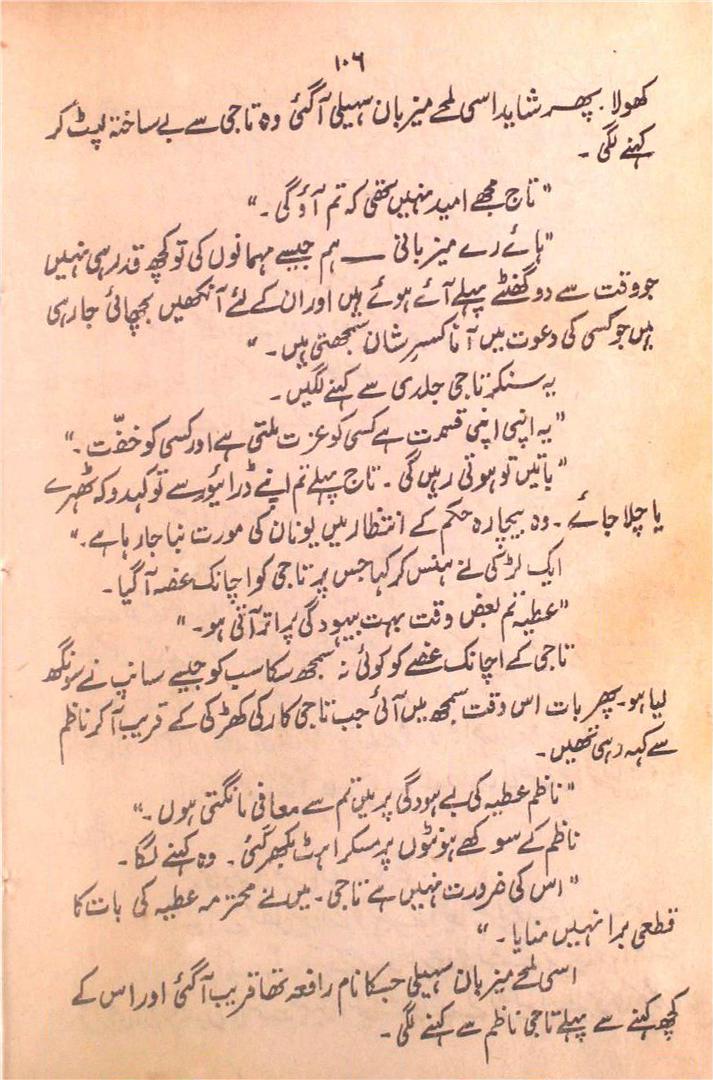 ۱۰۶
کھولا۔ پھر شاید اسی لمحے میزبان سہیلی آگئی وہ تاجی سے بے ساختہ لپٹ کر
کہنے لگی۔
"تاج مجھے امید نہیں تھی کہ تم آؤ گی۔"
"ہائے رے میزبانی — ہم جیسے مہمانوں کی تو کچھ قدر ہی نہیں
جو وقت سے دو گھنٹے پہلے آئے ہوئے ہیں اور ان کے لئے آنکھیں بچھائی جا رہی
ہیں جو کسی کی دعوت میں آنا کسرِ شان سمجھتی ہیں۔"
یہ سنکر تاجی جلدی سے کہنے لگیں۔
"یہ اپنی اپنی قسمت ہے کسی کو عزت ملتی ہے اور کسی کو خفّت۔"
"باتیں تو ہوتی رہیں گی۔ تاج پہلے تم اپنے ڈرائیور سے تو کہدو کہ ٹھہرے
یا چلا جائے۔ وہ بیچارہ حکم کے انتظار میں یونان کی مورت بنا جا رہا ہے۔"
ایک لڑکی نے ہنس کر کہا جس پر تاجی کو اچانک غصہ آگیا۔
"عطیہ تم بعض وقت بہت بیہودگی پر اتر آتی ہو۔"
تاجی کے اچانک غصے کو کوئی نہ سمجھ سکا سب کو جیسے سانپ نے سونگھ
لیا ہو۔ پھر بات اس وقت سمجھ میں آئی جب تاجی کار کی کھڑکی کے قریب آکر ناظم
سے کہہ رہی تھیں۔
"ناظم عطیہ کی بے ہودگی پر میں تم سے معافی مانگتی ہوں۔"
ناظم کے سوکھے ہونٹوں پر مسکراہٹ بکھر گئی۔ وہ کہنے لگا۔
"اس کی ضرورت نہیں ہے تاجی۔ میں نے محترمہ عطیہ کی بات کا
قطعی برا نہیں منایا۔"
اسی لمحے میزبان سہیلی جسکا نام رافعہ تھا قریب آگئی اور اس کے
کچھ کہنے سے پہلے تاجی ناظم سے کہنے لگی۔